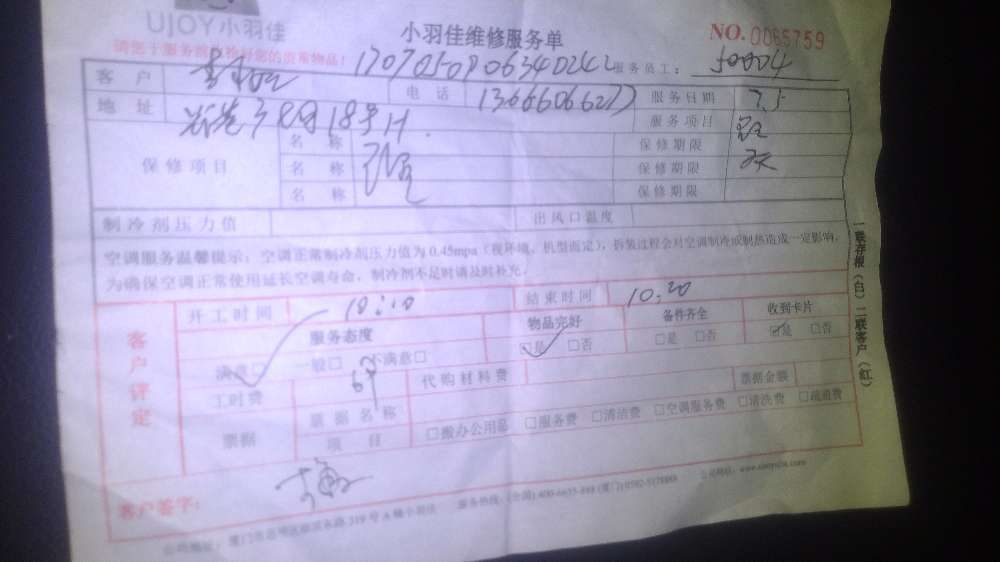 UJOY小羽佳
小羽佳维修服务单
NO. 0065759
请您于服务前收检好您的贵重物品！
1707050906340242 服务员工：50004
客 户 电 话 13666066277 服务日期 7.5
地 址 18号H 服务项目
保修项目 名 称 保修期限
名 称 保修期限
名 称 保修期限
制冷剂压力值 出风口温度
空调服务温馨提示：空调正常制冷剂压力值为0.45mpa（视环境、机型而定），拆装过程会对空调制冷或制热造成一定影响，
为确保空调正常使用延长空调寿命，制冷剂不足时请及时补充。
一联存根（白）二联客户（红）
客户评定
开工时间 10:10 结束时间 10:20
服务态度 物品完好 备件齐全 收到卡片
满意□ 一般□ 不满意□ □是 □否 □是 □否 □是 □否
工时费 代购材料费
票据 票据名称 票据金额
项 目 □搬办公用品 □服务费 □清洁费 □空调服务费 □清洗费 □疏通费
客户签字：
公司地址：厦门市思明区 319号 小羽佳 服务热线：(全国) 400-6635-888 (厦门) 0592-5178888 公司网站：